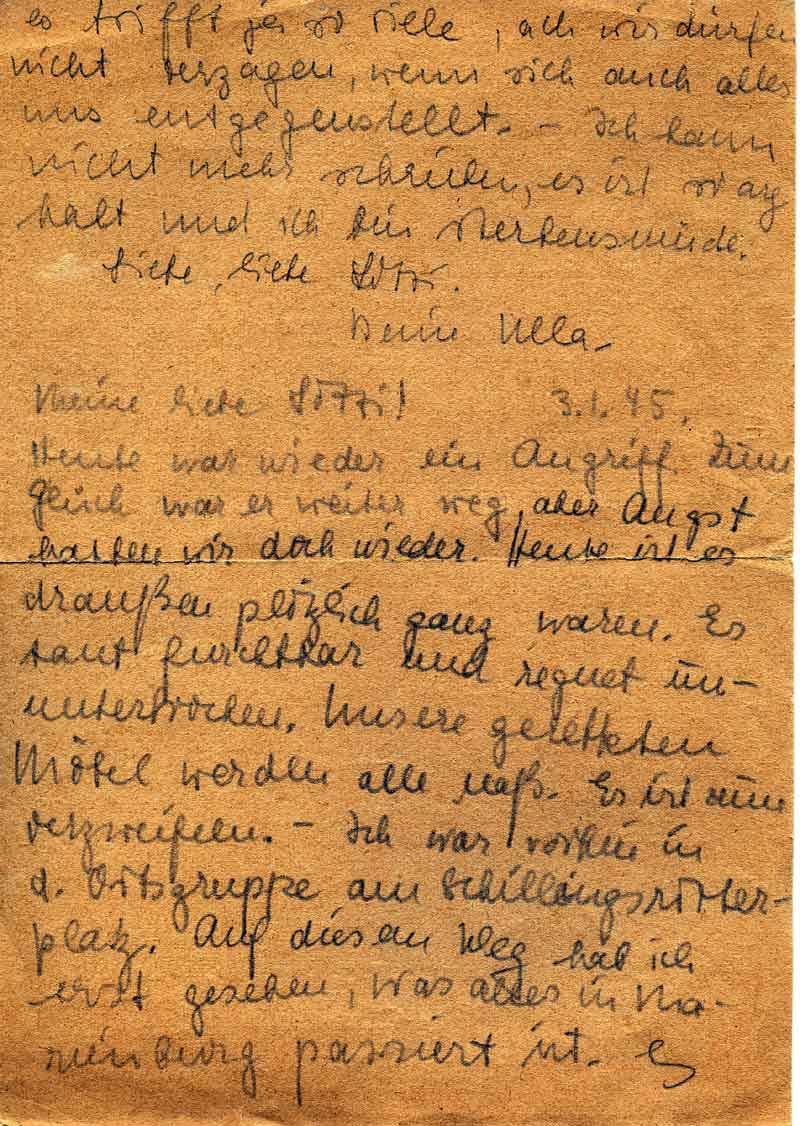 es trifft ja so viele, ach wir dürfen
nicht verzagen, wenn sich auch alles
uns entgegenstellt. – Ich kann
nicht mehr schreiben, es ist so arg
kalt und ich bin sterbensmüde.
Liebe, liebe Lötti.
Deine Ulla.
Meine liebe Lötti! 3.1.45.
Heute war wieder ein Angriff. Zum
Glück war er weiter weg, aber Angst
hatten wir doch wieder. Heute ist es
draußen plötzlich ganz warm. Es
taut furchtbar und regnet un-
unterbrochen. Unsere geretteten
Möbel werden alle naß. Es ist zum
verzweifeln. – Ich war vorhin in
d. Ortsgruppe am Schillingsrotter-
platz. Auf diesem Weg hab ich
erst gesehen, was alles in Ma-
rienburg passiert ist. Es